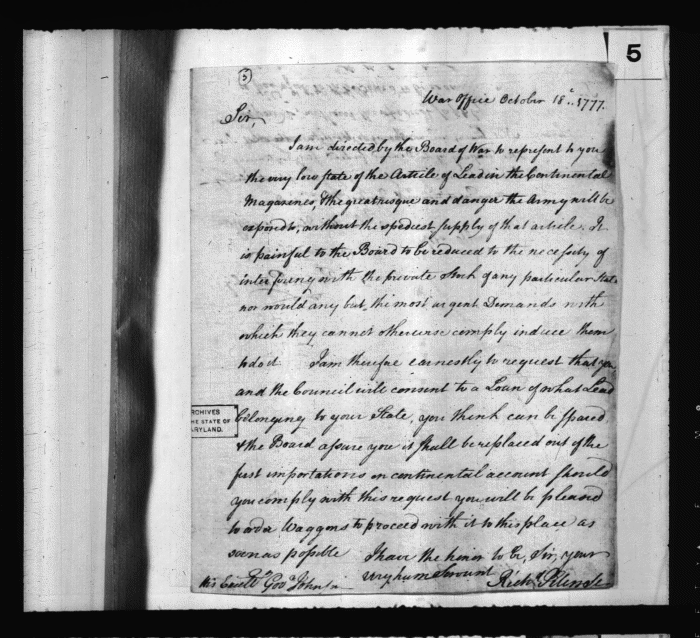 5
(5)
War Office October 18th.. 1777.
Sir,
I am directed by the Board of War to represent to you
the very low state of the Article of Lead in the Continental
Magazines, & the great risque and danger the Army will be
expos'd to, without the spediest supply of that article. It
is painful to the Board to be reduced to the necessity of
interfering with the private Stock of any particular State
nor would any but the most urgent Demands with
which they cannot otherwise comply induce them
to do it. I am therefore earnestly to request that you
and the Council will consent to a Loan of what Lead
belonging to your State, you think can be spared
& the Board assure you it shall be replaced out of the
first importations on continental account should
you comply with this request you will be pleased
to order Waggons to proceed with it to this place as
soon as possible I have the honor to be, Sir, your
very hum Servant
His Excelly Govr Johnson Richd Peters Sec
ARCHIVES
THE STATE OF
MARYLAND.